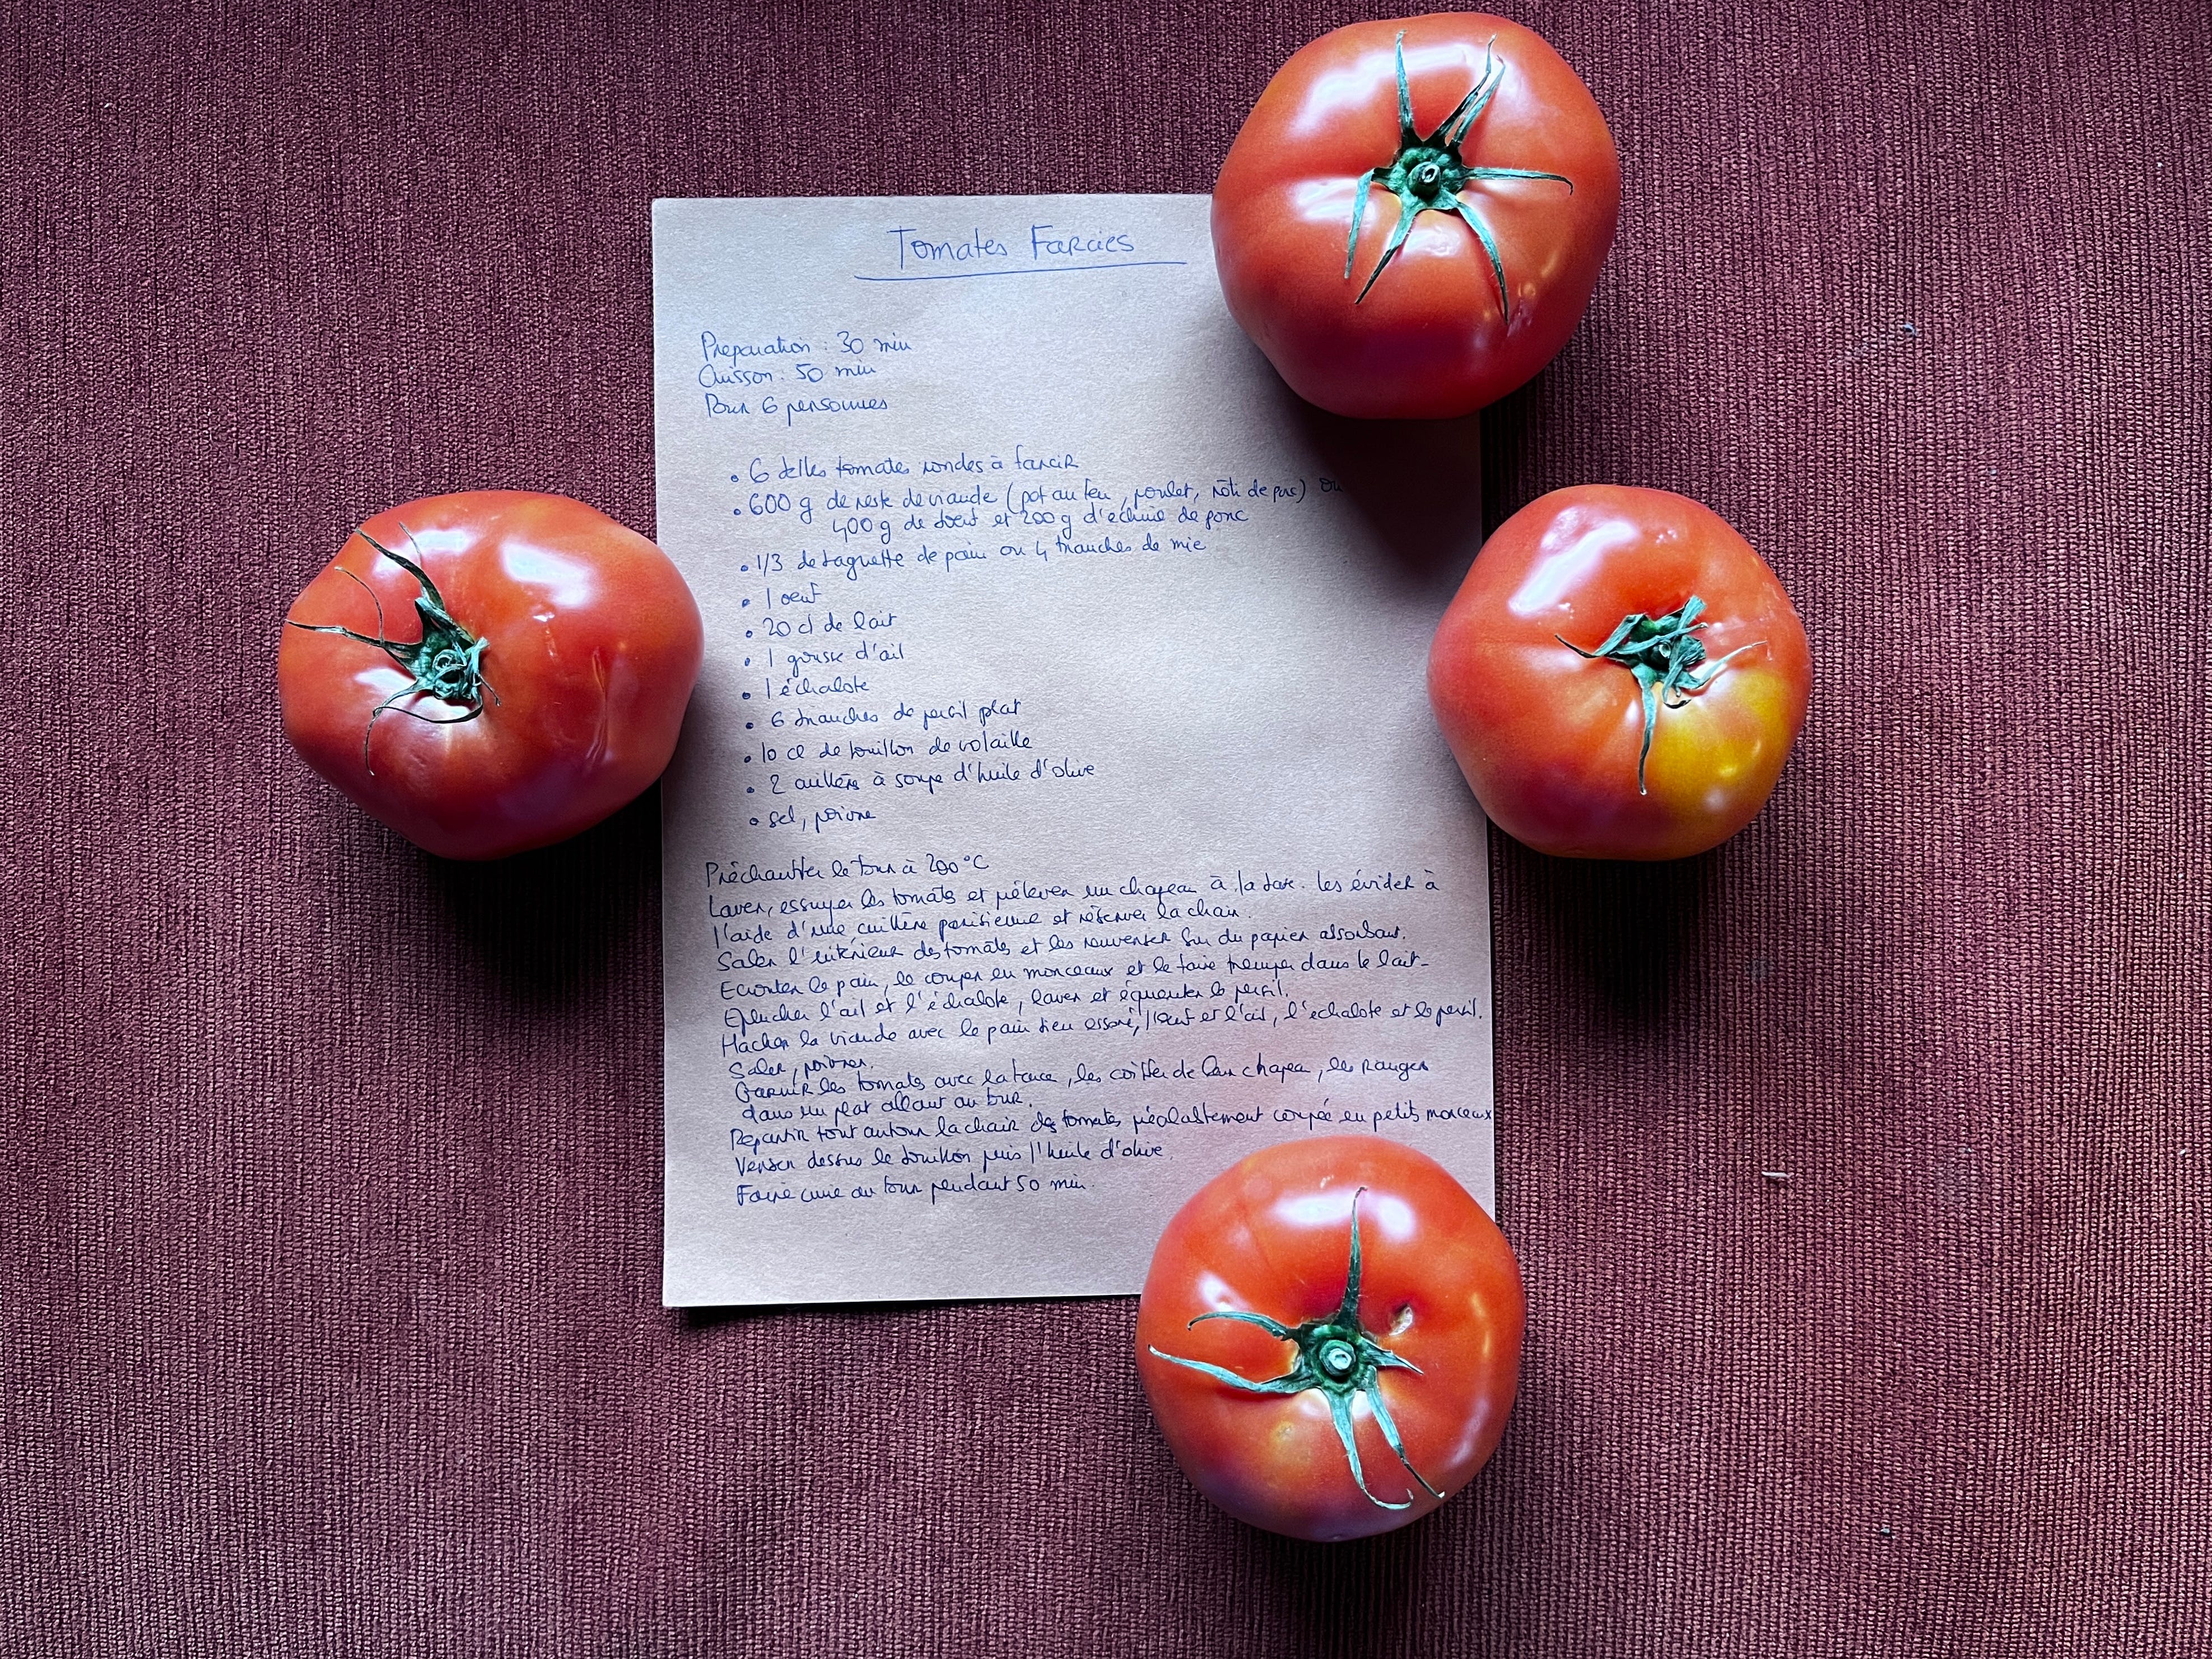 Tomates Farcies
Préparation : 30 min
Cuisson : 50 min
Pour 6 personnes
• 6 belles tomates rondes à farcir
• 600 g de reste de viande (pot au feu, poulet, rôti de porc) ou
400 g de boeuf et 200 g d'échine de porc
• 1/3 de baguette de pain ou 4 tranches de mie
• 1 oeuf
• 20 cl de lait
• 1 gousse d'ail
• 1 échalote
• 6 branches de persil plat
• 10 cl de bouillon de volaille
• 2 cuillers à soupe d'huile d'olive
• sel, poivre
Préchauffer le four à 200°C
Laver, essuyer les tomates et prélever un chapeau à la base. Les évider à
l'aide d'une cuillère parisienne et réserver la chair.
Saler l'intérieur des tomates et les renverser sur du papier absorbant.
Ecrouter le pain, le couper en morceaux et le faire tremper dans le lait.
Eplucher l'ail et l'échalote, laver et équeuter le persil.
Hacher la viande avec le pain bien essoré, l'oeuf et l'ail, l'échalote et le persil.
Saler, poivrer.
Garnir les tomates avec la farce, les coiffer de leur chapeau, les ranger
dans un plat allant au four.
Répartir tout autour la chair des tomates préalablement coupée en petits morceaux
Verser dessus le bouillon puis l'huile d'olive.
Faire cuire au four pendant 50 min.